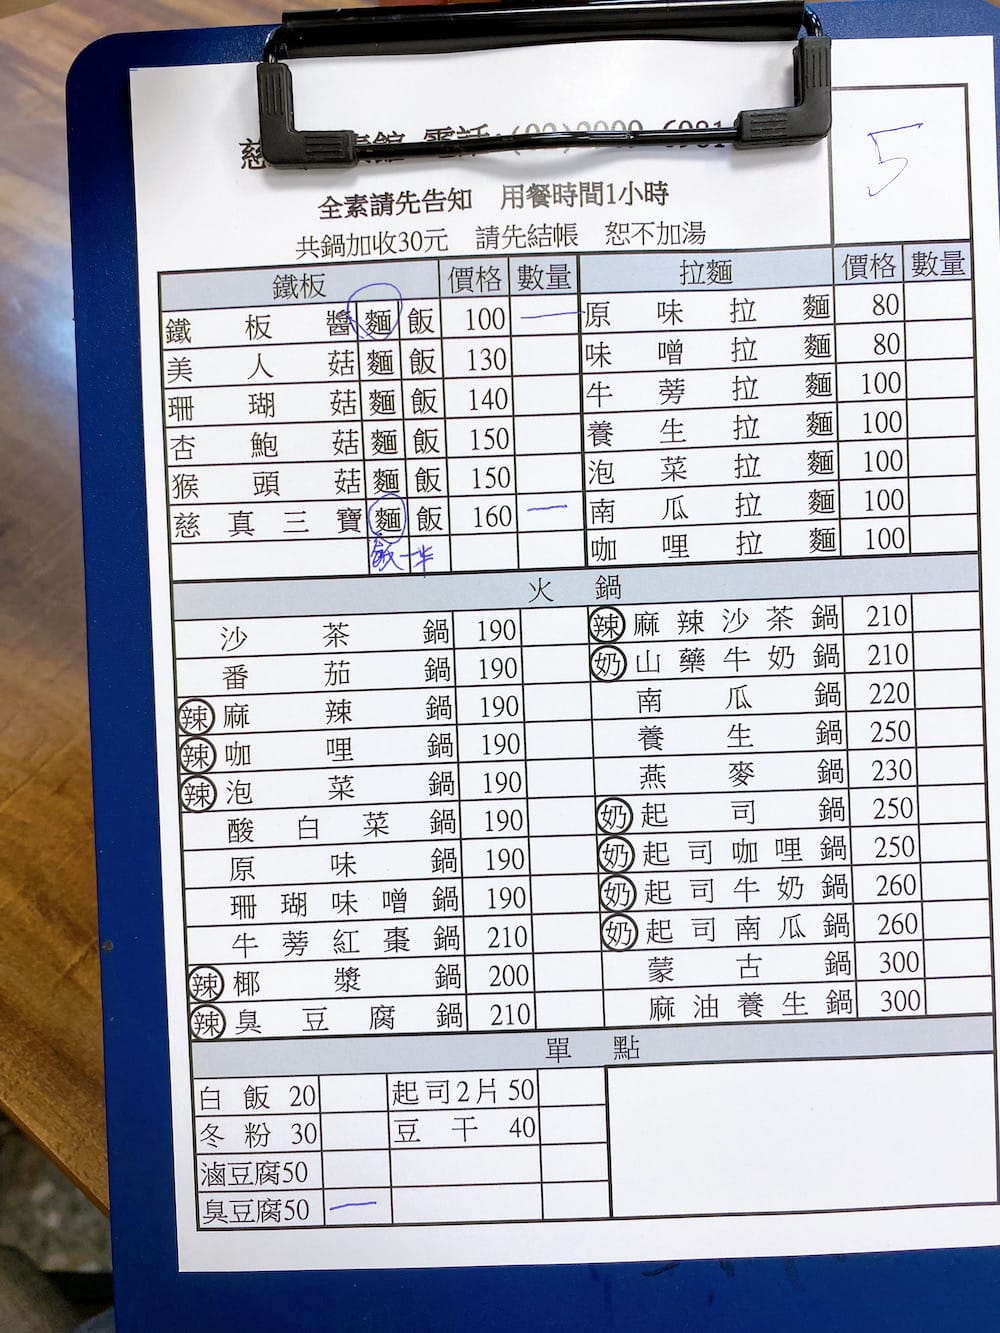 慈 素館 電話:(02)2909-6981
5
全素請先告知 用餐時間1小時
共鍋加收30元 請先結帳 恕不加湯
鐵板 價格 數量 拉麵 價格 數量
鐵板醬 麵 飯 100 一 原味拉麵 80
美人菇 麵 飯 130 味噌拉麵 80
珊瑚菇 麵 飯 140 牛蒡拉麵 100
杏鮑菇 麵 飯 150 養生拉麵 100
猴頭菇 麵 飯 150 泡菜拉麵 100
慈真三寶 麵 飯 160 一 南瓜拉麵 100
飯一半 咖哩拉麵 100
火鍋
沙茶鍋 190 辣 麻辣沙茶鍋 210
番茄鍋 190 奶 山藥牛奶鍋 210
辣 麻辣鍋 190 南瓜鍋 220
辣 咖哩鍋 190 養生鍋 250
辣 泡菜鍋 190 燕麥鍋 230
酸白菜鍋 190 奶 起司鍋 250
原味鍋 190 奶 起司咖哩鍋 250
珊瑚味噌鍋 190 奶 起司牛奶鍋 260
牛蒡紅棗鍋 210 奶 起司南瓜鍋 260
辣 椰漿鍋 200 蒙古鍋 300
辣 臭豆腐鍋 210 麻油養生鍋 300
單點
白飯 20 起司2片 50
冬粉 30 豆干 40
滷豆腐50
臭豆腐50 一